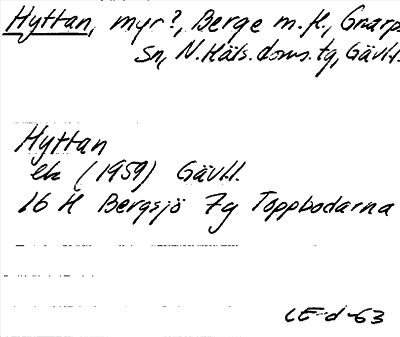 Hyttan, myr?, Berge m.fl., Gnarps
sn, N.Häls.doms.tg, Gävl.l.
Hyttan
ek (1959) Gävl.l.
16 H Bergsjö 7g Toppbodarna
LE-d-63